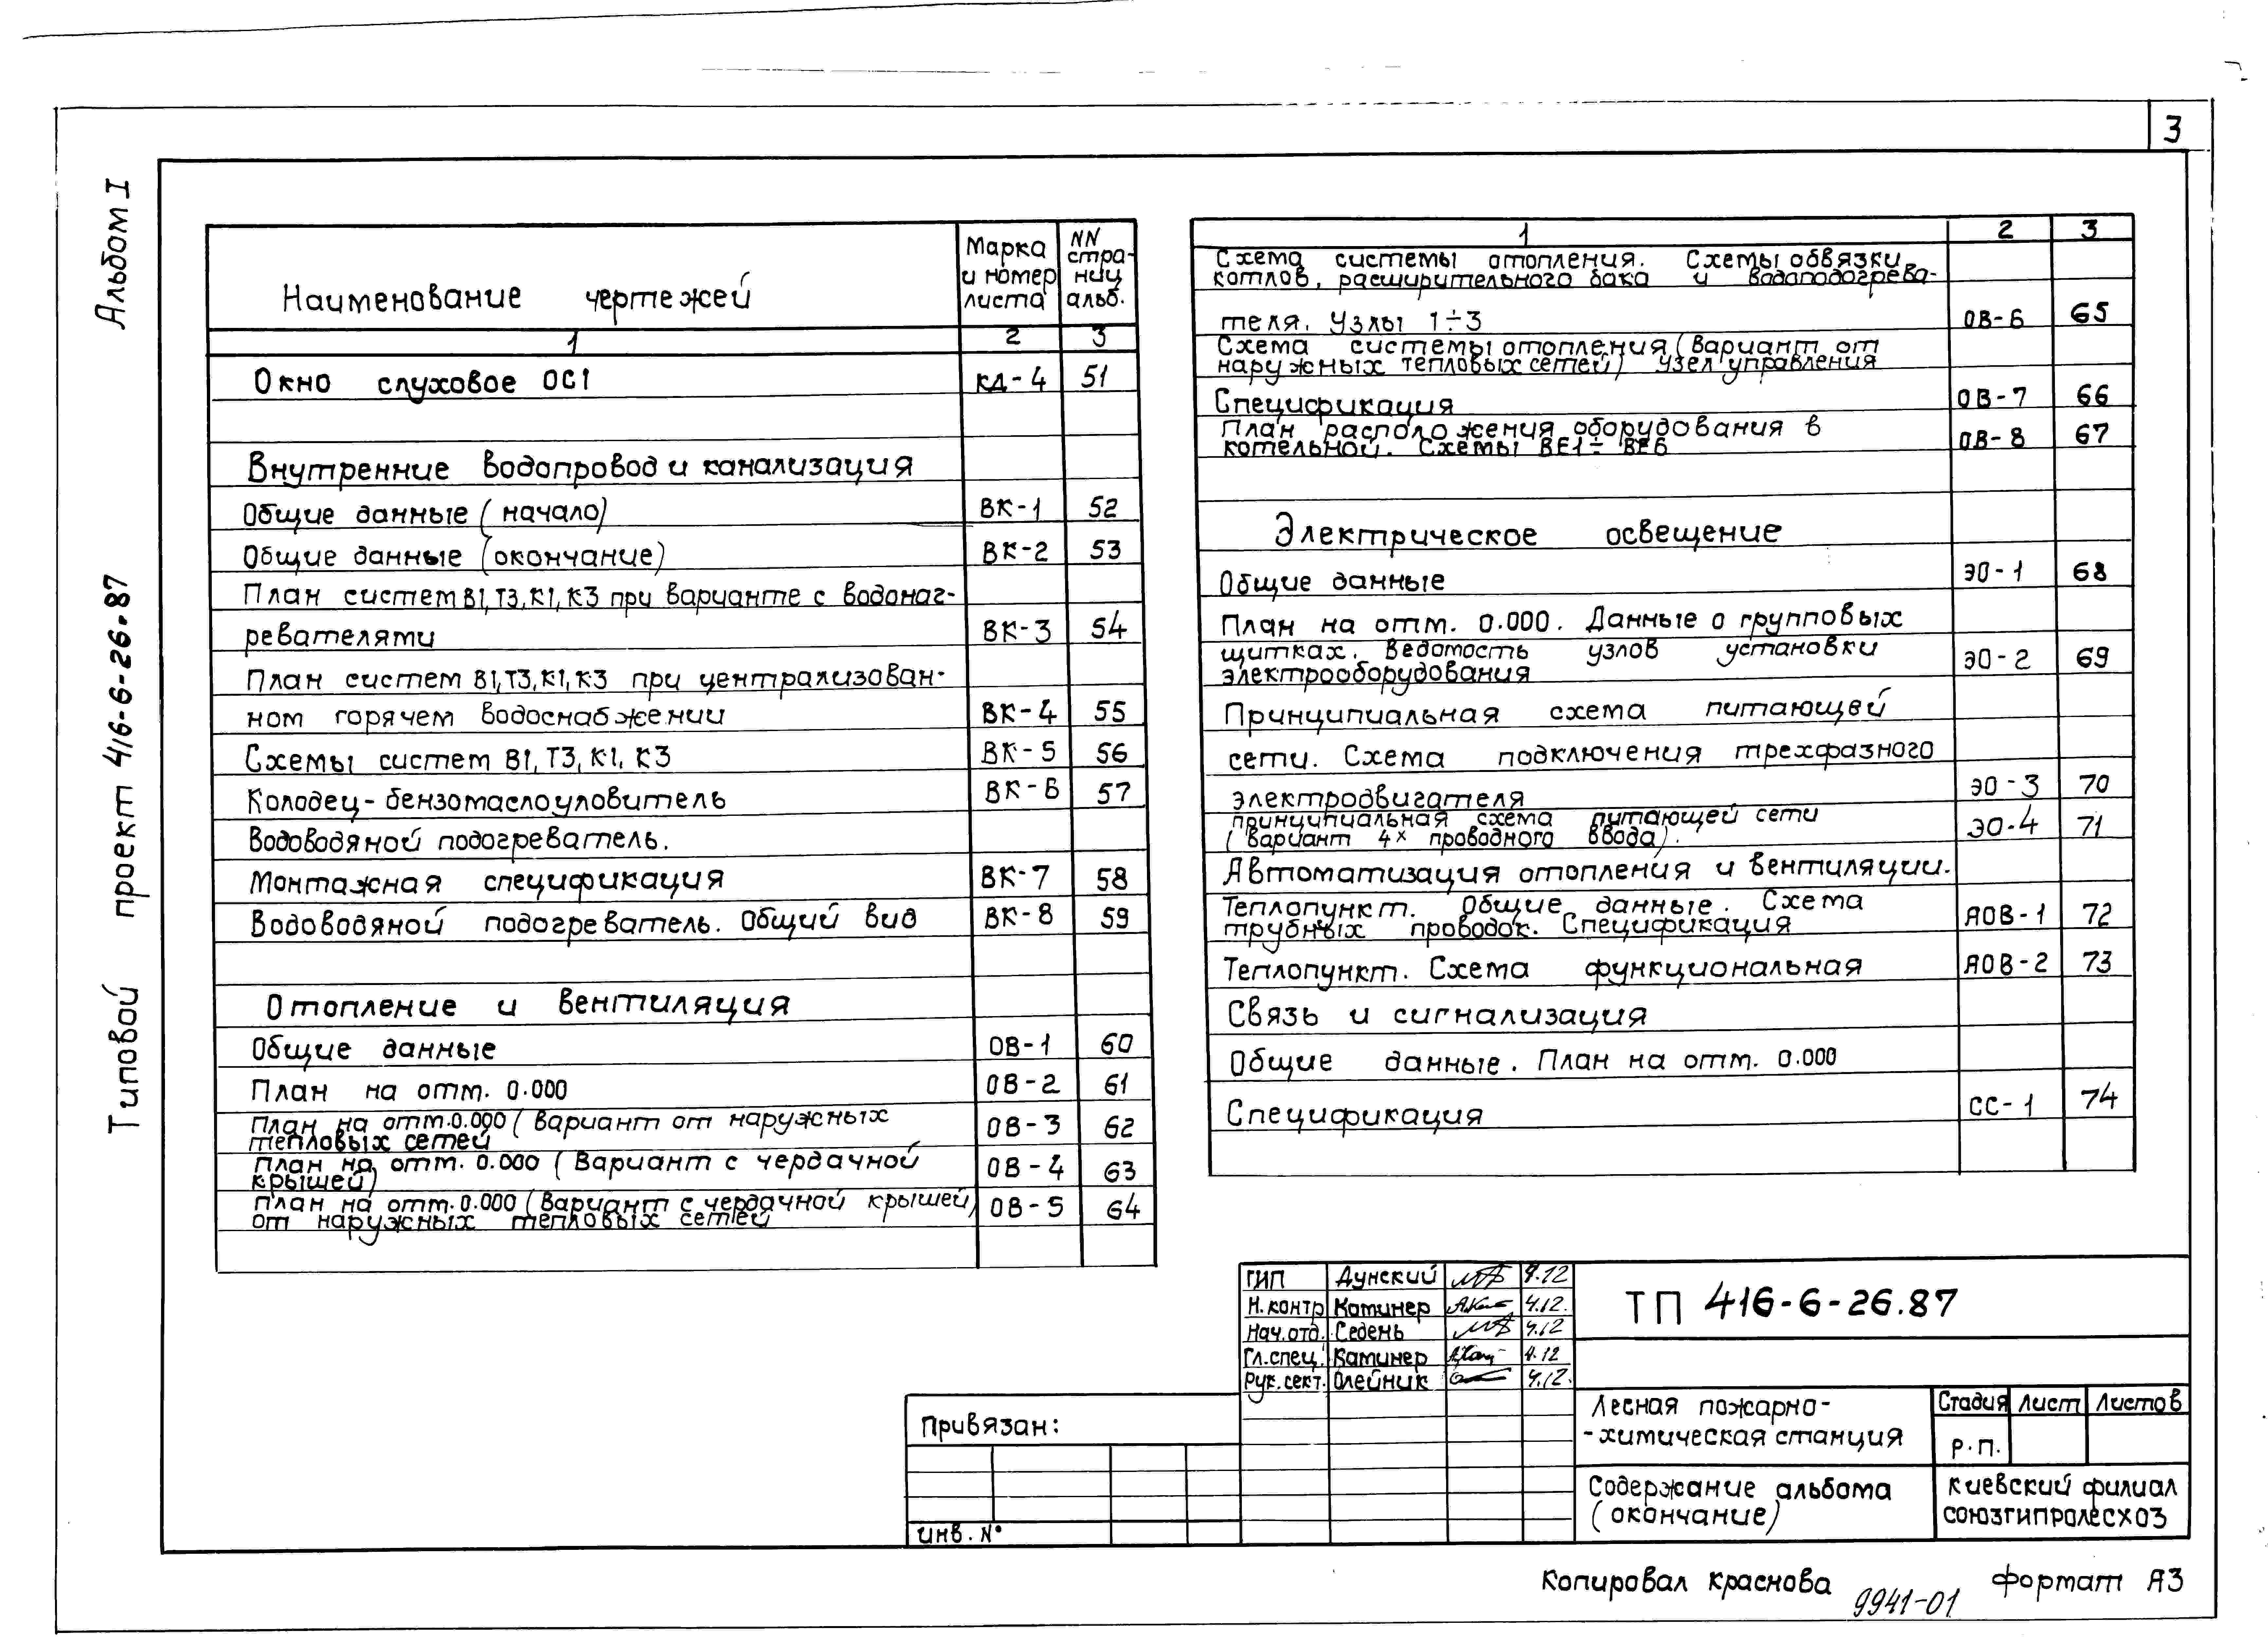 3
Альбом I
Типовой проект 416-6-26.87
Наименование чертежей
Марка и номер листа
NN страниц альб.
1 2 3
Окно слуховое ОС1 КД-4 51
Внутренние водопровод и канализация
Общие данные (начало) ВК-1 52
Общие данные (окончание) ВК-2 53
План систем В1,Т3,К1,К3 при варианте с водонаг-
ревателями ВК-3 54
План систем В1,Т3,К1,К3 при централизован-
ном горячем водоснабжении ВК-4 55
Схемы систем В1,Т3,К1,К3 ВК-5 56
Колодец-бензомаслоуловитель ВК-6 57
Водоводяной подогреватель.
Монтажная спецификация ВК-7 58
Водоводяной подогреватель. Общий вид ВК-8 59
Отопление и вентиляция
Общие данные ОВ-1 60
План на отм. 0.000 ОВ-2 61
План на отм.0.000 (Вариант от наружных
тепловых сетей ОВ-3 62
План на отм. 0.000 (Вариант с чердачной
крышей) ОВ-4 63
План на отм.0.000 (Вариант с чердачной крышей)
от наружных тепловых сетей ОВ-5 64
1 2 3
Схема системы отопления. Схемы обвязки
котлов, расширительного бака и водоподогрева-
теля. Узлы 1÷3 ОВ-6 65
Схема системы отопления (Вариант от
наружных тепловых сетей) Узел управления
Спецификация ОВ-7 66
План расположения оборудования в
котельной. Схемы ВЕ1÷ВЕ6 ОВ-8 67
Электрическое освещение
Общие данные ЭО-1 68
План на отм. 0.000. Данные о групповых
щитках. Ведомость узлов установки
электрооборудования ЭО-2 69
Принципиальная схема питающей
сети. Схема подключения трехфазного
электродвигателя ЭО-3 70
принципиальная схема питающей сети
(Вариант 4х проводного ввода). ЭО-4 71
Автоматизация отопления и вентиляции.
Теплопункт. Общие данные. Схема
трубных проводок. Спецификация АОВ-1 72
Теплопункт. Схема функциональная АОВ-2 73
Связь и сигнализация
Общие данные. План на отм. 0.000
Спецификация СС-1 74
ГИП Дунский 4.12
Н.контр Каминер 4.12.
Нач.отд. Седень 4.12
Гл.спец. Каминер 4.12
Рук.сект. Олейник 4.12.
ТП 416-6-26.87
Лесная пожарно-
-химическая станция
Стадия Лист Листов
Р.П.
Содержание альбома
(окончание)
Киевский филиал
союзгипролесхоз
Привязан:
инв. N°
Копировал краснова
9941-01
формат А3